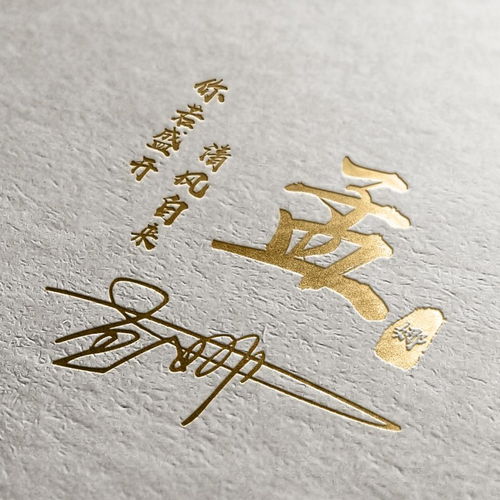 你若盛开
清风自来
孟
娜